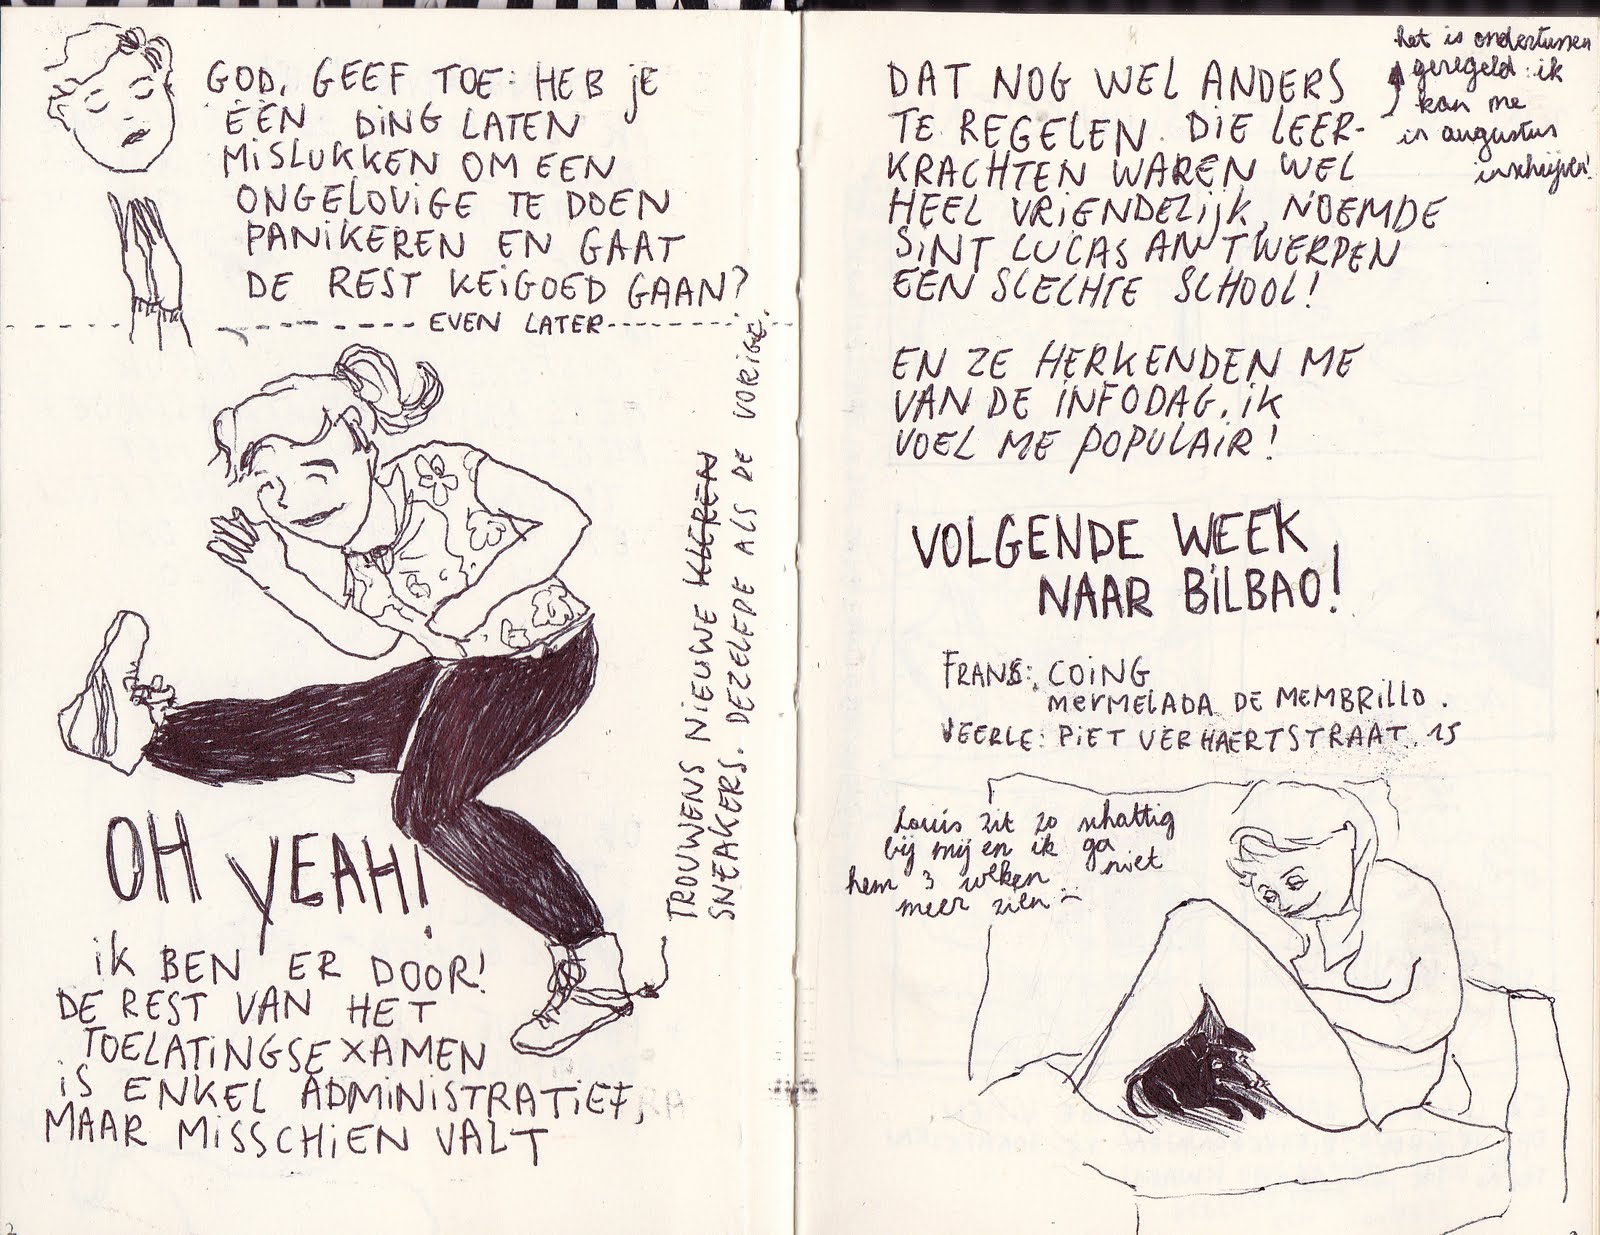 GOD, GEEF TOE: HEB JE
ÉÉN DING LATEN
MISLUKKEN OM EEN
ONGELOVIGE TE DOEN
PANIKEREN EN GAAT
DE REST KEIGOED GAAN?
EVEN LATER
TROUWENS NIEUWE KLEREN
SNEAKERS. DEZELFDE ALS DE VORIGE.
OH YEAH!
IK BEN ER DOOR!
DE REST VAN HET
TOELATINGSEXAMEN
IS ENKEL ADMINISTRATIEF,
MAAR MISSCHIEN VALT
2
DAT NOG WEL ANDERS
TE REGELEN. DIE LEER-
KRACHTEN WAREN WEL
HEEL VRIENDELIJK, NOEMDE
SINT LUCAS ANTWERPEN
EEN SLECHTE SCHOOL!
het is ondertussen
geregeld: ik
kan me
in augustus
inschrijven!
EN ZE HERKENDEN ME
VAN DE INFODAG. IK
VOEL ME POPULAIR!
VOLGENDE WEEK
NAAR BILBAO!
FRANS: COING
MERMELADA DE MEMBRILLO.
VEERLE: PIET VERHAERTSTRAAT 15
Louis zit zo schattig
bij mij en ik ga
hem 3 weken niet
meer zien